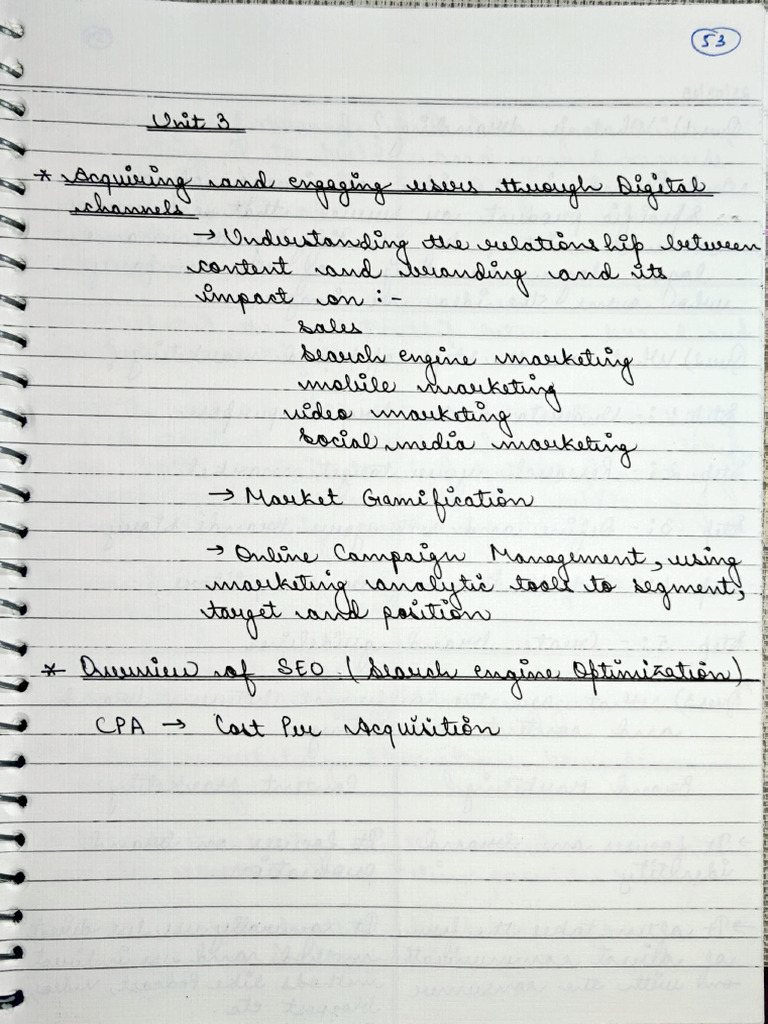 53
Unit 3
* Acquiring and engaging users through Digital
channels
→ Understanding the relationship between
content and branding and its
impact on :-
Sales
Search engine marketing
mobile marketing
video marketing
Social media marketing
→ Market Gamification
→ Online Campaign Management, using
marketing analytic tools to segment,
target and position
* Overview of SEO (Search engine Optimization)
CPA → Cost Per Acquisition